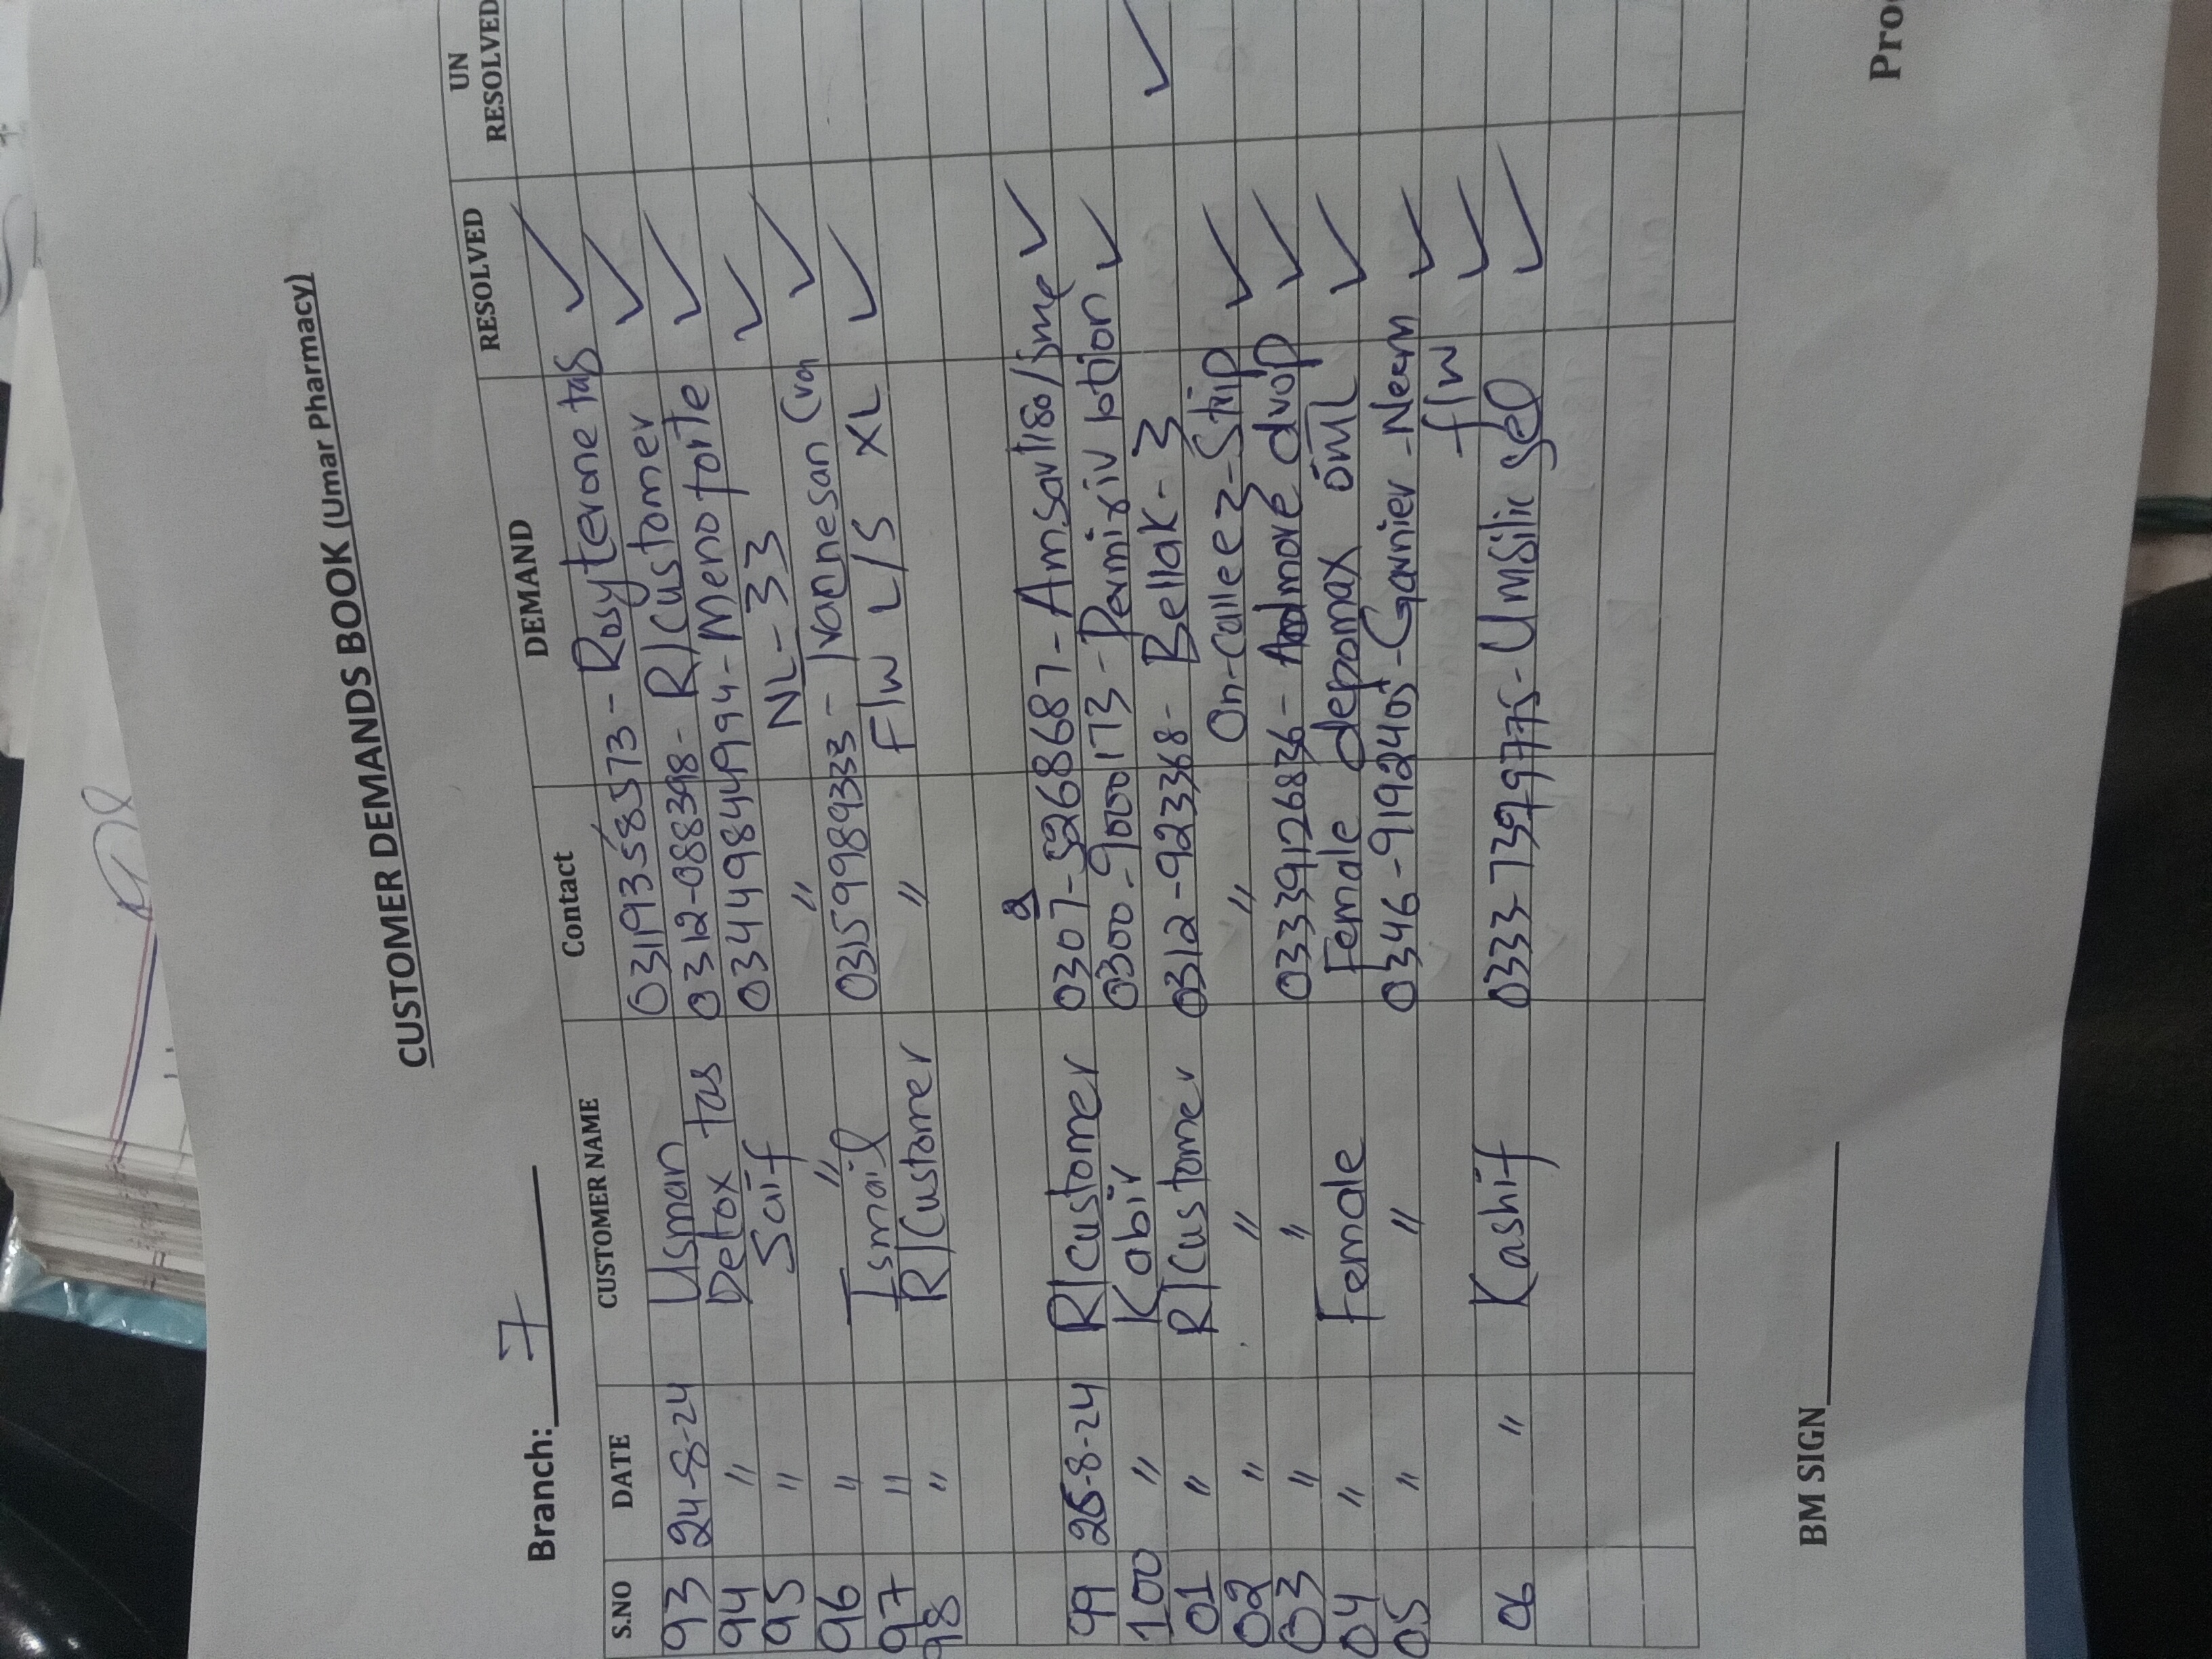 CUSTOMER DEMANDS BOOK (Umar Pharmacy)
Branch: 7
S.NO DATE CUSTOMER NAME Contact DEMAND RESOLVED UN RESOLVED
93 24-8-24 Usman 03119358573 - Rosyterone tab ✓
94 " Detox tas 0312-088398 - R/Customer ✓
95 " Saif 03449844994 - Menoforte ✓
96 " " " NL-33 ✓
97 " Ismail 03159989333 - ✓
98 " R/Customer " F/w L/S XL ✓
99 25-8-24 R/Customer 0307-5268687 - ✓
100 " Kabir 0300-9000173 - Permixiv lotion ✓
01 " R/Customer 0312-923368 - Bellak-3 ✓
02 " " " On-Callez-Strip ✓
03 " " 03339126836 - drop ✓
04 " Female Female depomax ✓
05 " " 0346-9192405 - Garnier-Neem ✓
f/w ✓
06 " Kashif 0333- gel ✓
BM SIGN